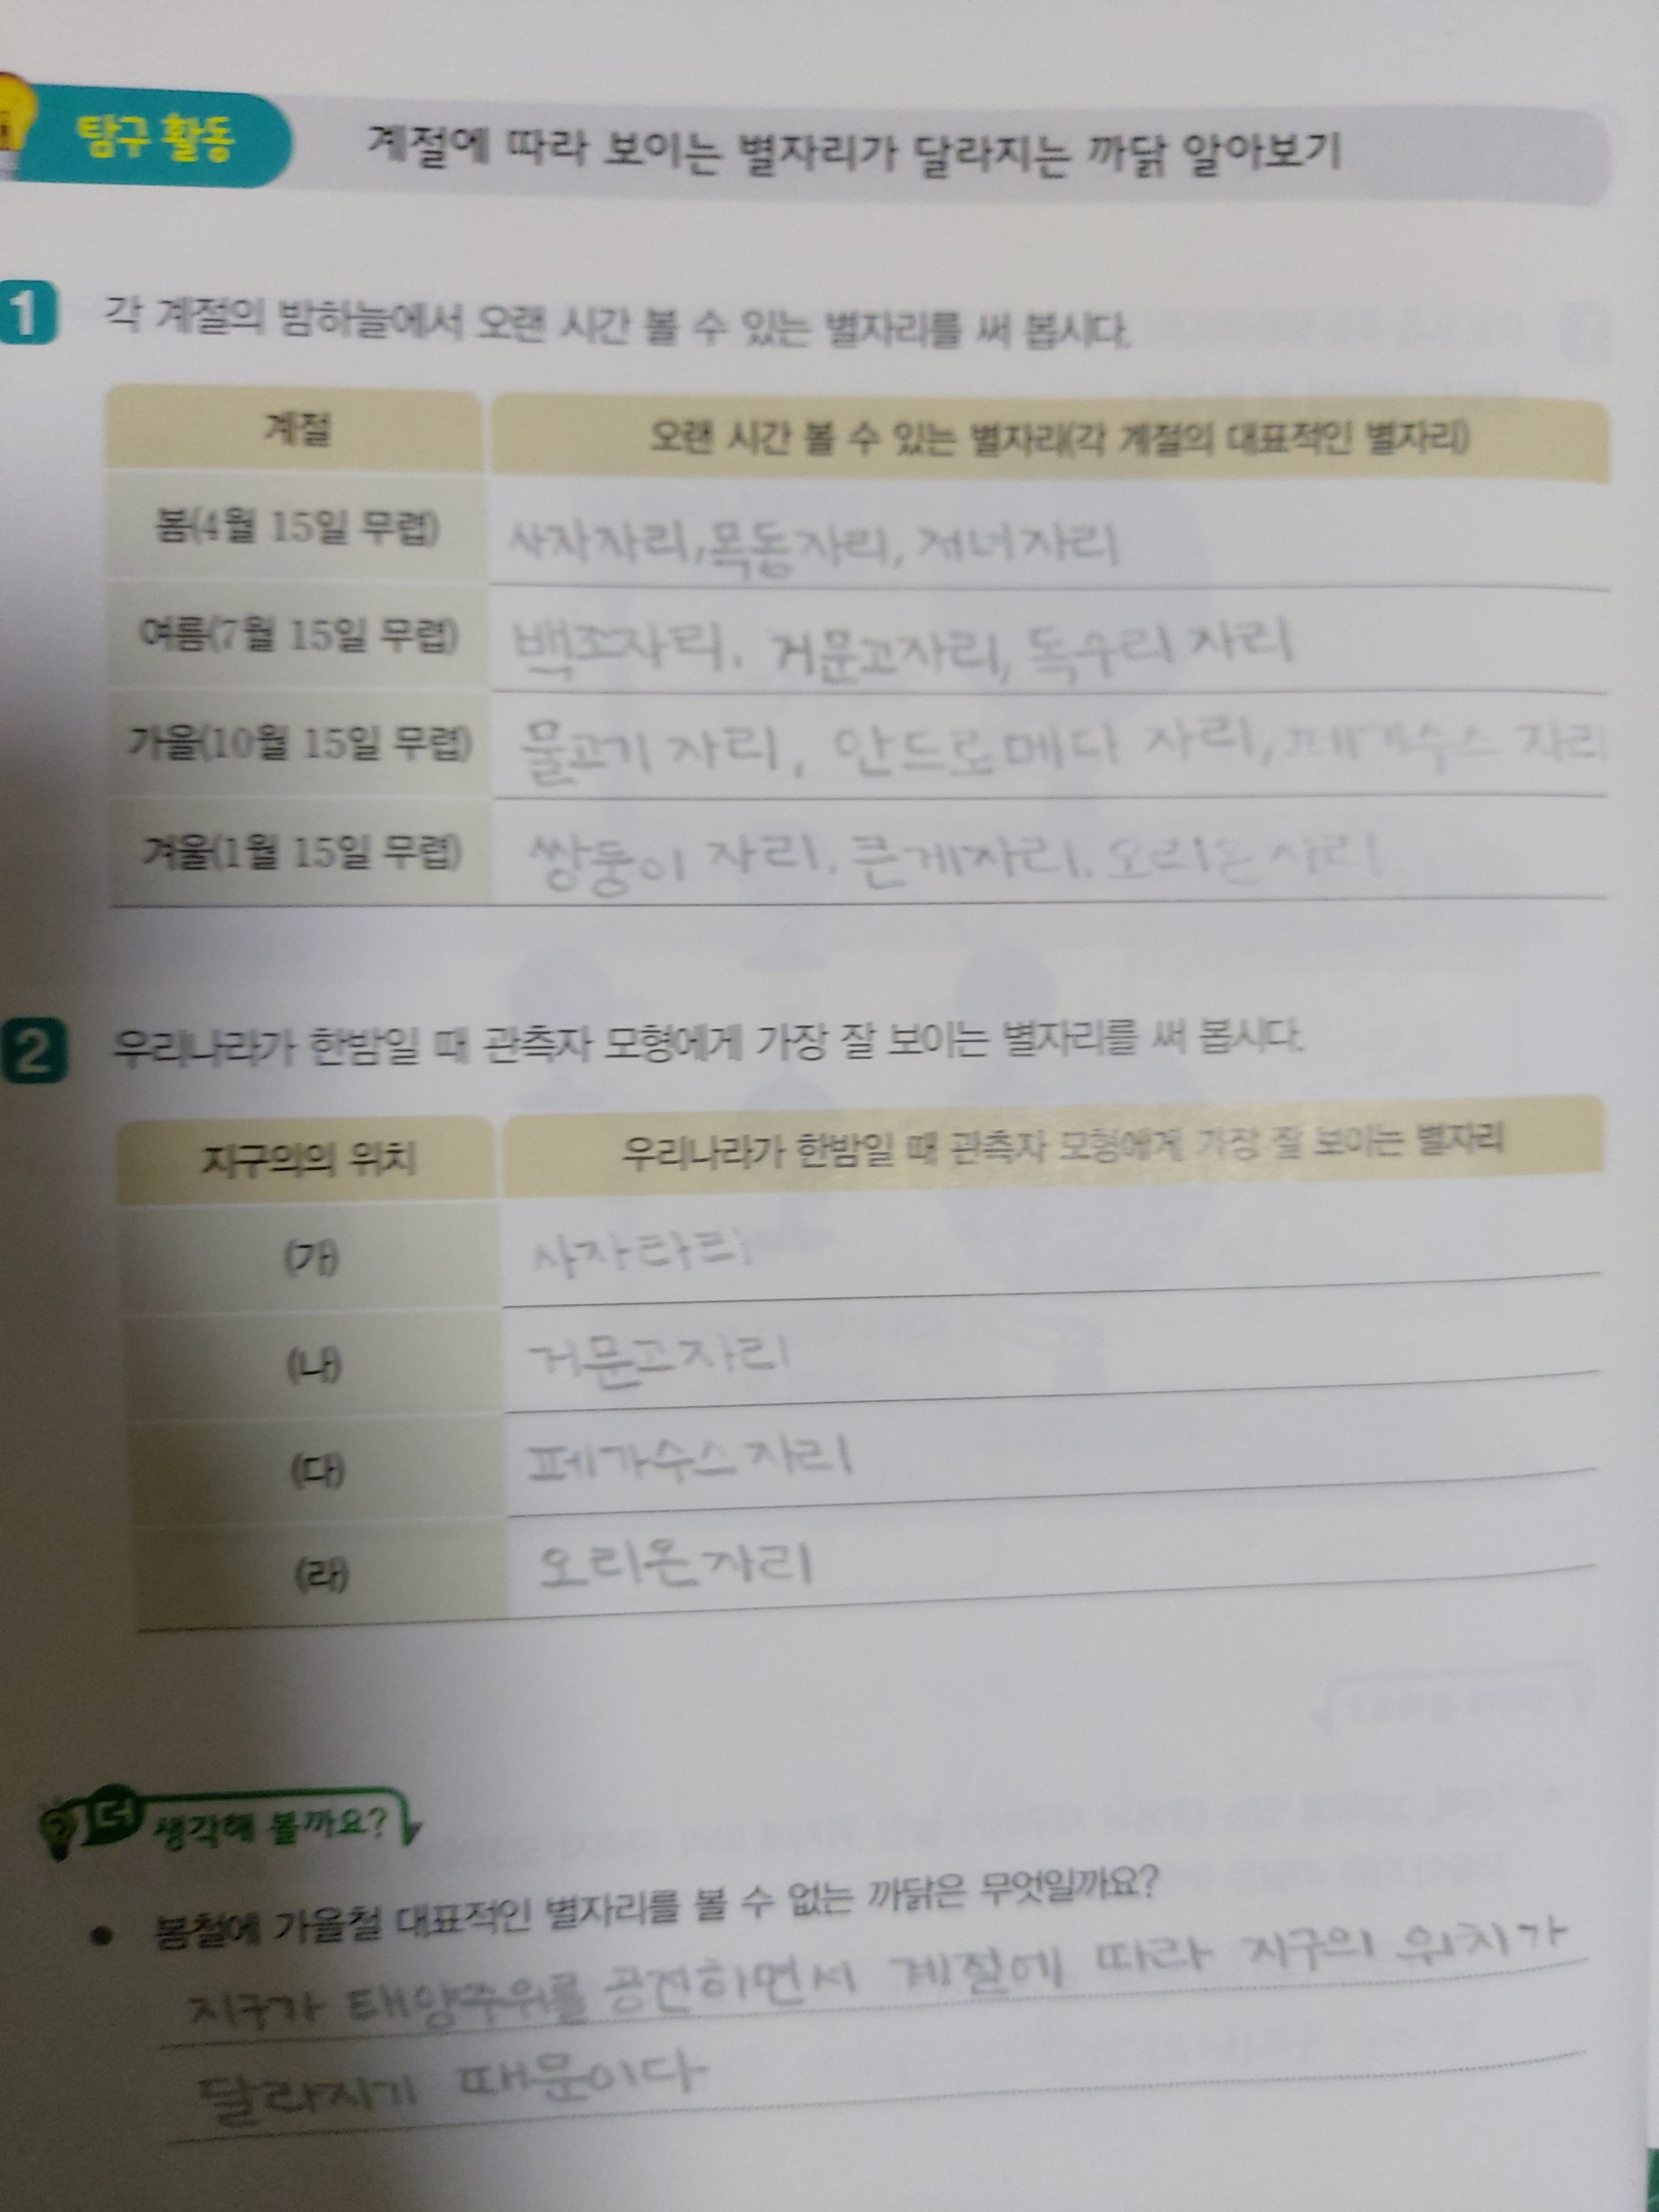 탐구 활동 계절에 따라 보이는 별자리가 달라지는 까닭 알아보기
1 각 계절의 밤하늘에서 오랜 시간 볼 수 있는 별자리를 써 봅시다.
계절 오랜 시간 볼 수 있는 별자리(각 계절의 대표적인 별자리)
봄(4월 15일 무렵) 사자자리, 목동자리, 처녀자리
여름(7월 15일 무렵) 백조자리. 거문고자리, 독수리 자리
가을(10월 15일 무렵) 물고기 자리, 안드로메다 자리, 페가수스 자리
겨울(1월 15일 무렵) 쌍둥이 자리. 큰개자리. 오리온 자리
2 우리나라가 한밤일 때 관측자 모형에게 가장 잘 보이는 별자리를 써 봅시다.
지구의의 위치 우리나라가 한밤일 때 관측자 모형에게 가장 잘 보이는 별자리
(가) 사자
(나) 거문고자리
(다) 페가수스자리
(라) 오리온자리
더 생각해 볼까요?
• 봄철에 가을철 대표적인 별자리를 볼 수 없는 까닭은 무엇일까요?
지구가 태양주위를 공전하면서 계절에 따라 지구의 위치가
달라지기 때문이다